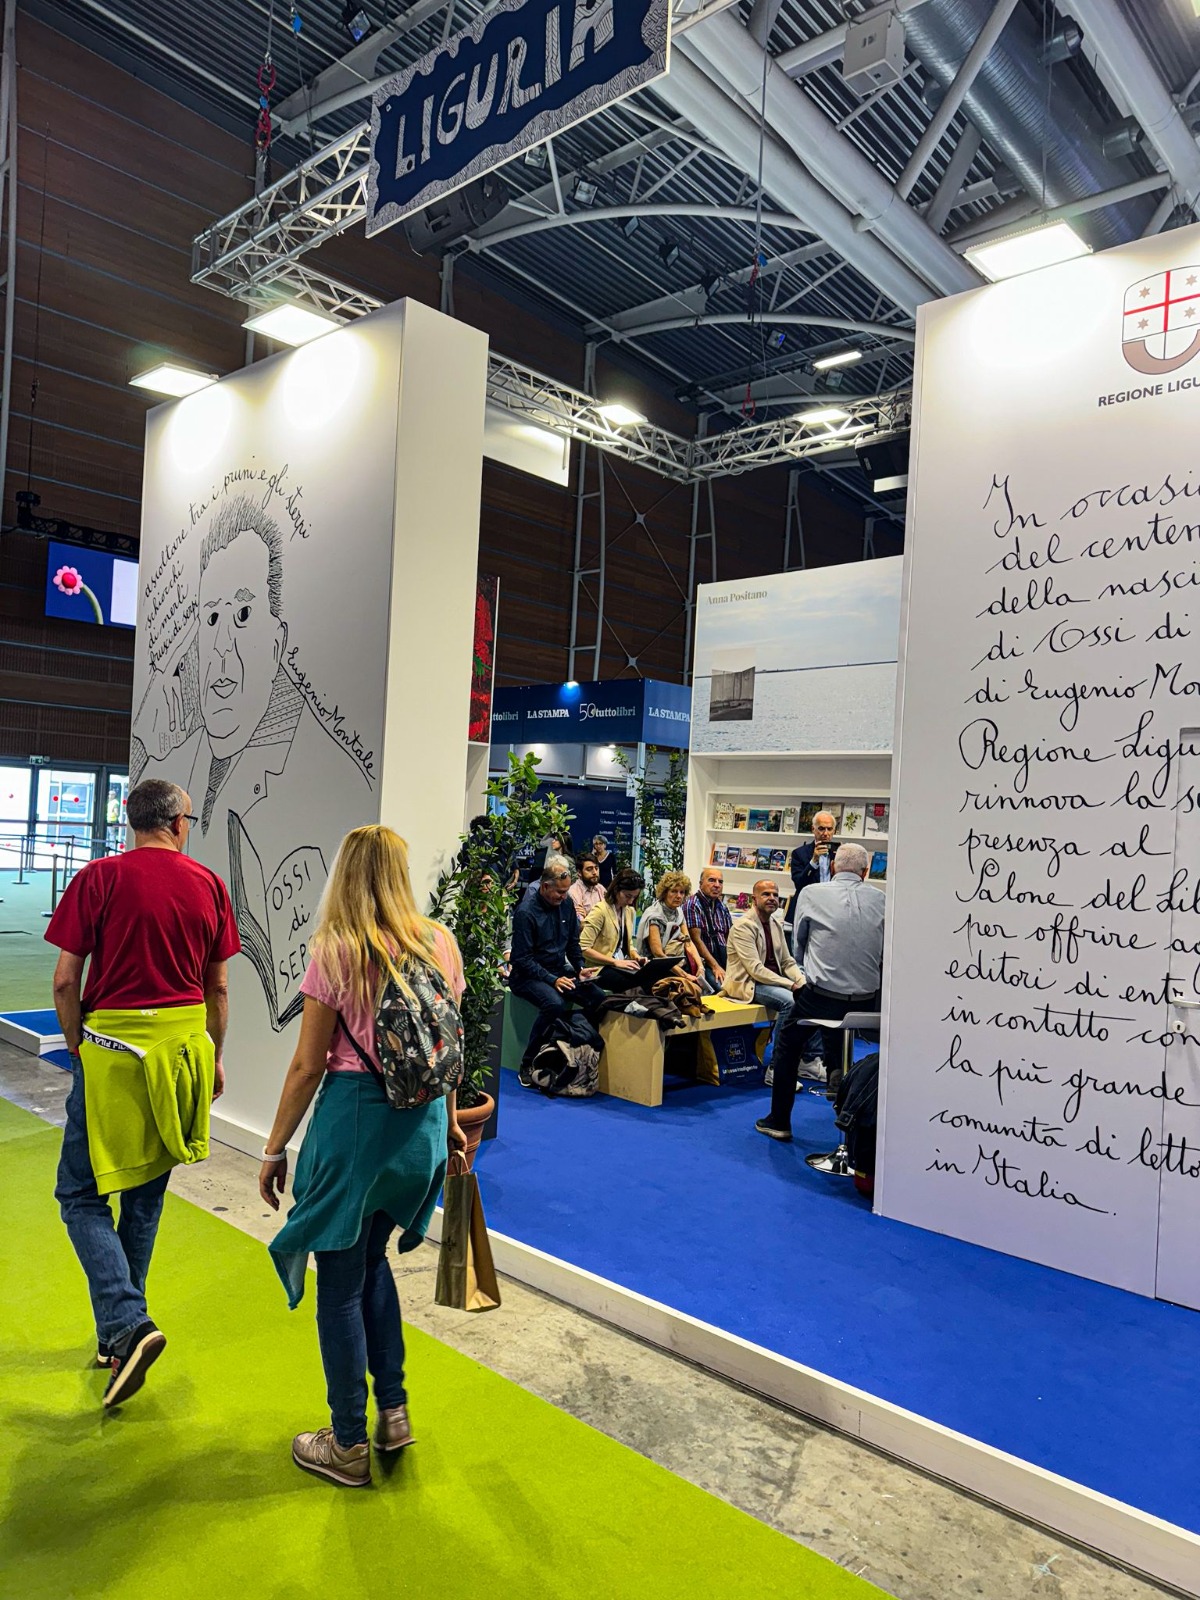 LIGURIA
ascoltare tra i pruni e gli sterpi
schiocchi
di merli
frusci di serpi
Eugenio Montale
OSSI
di
SEP
Anna Positano
ttolibri
LA STAMPA
50
tuttolibri
LA STAMPA
REGIONE LIGU
In occasi
del centen
della nasci
di Ossi di
di Eugenio Mo
Regione Ligu
rinnova la s
presenza al
Salone del Lib
per offrire a
editori di ent
in contatto con
la più grande
comunità di letto
in Italia.
FILA